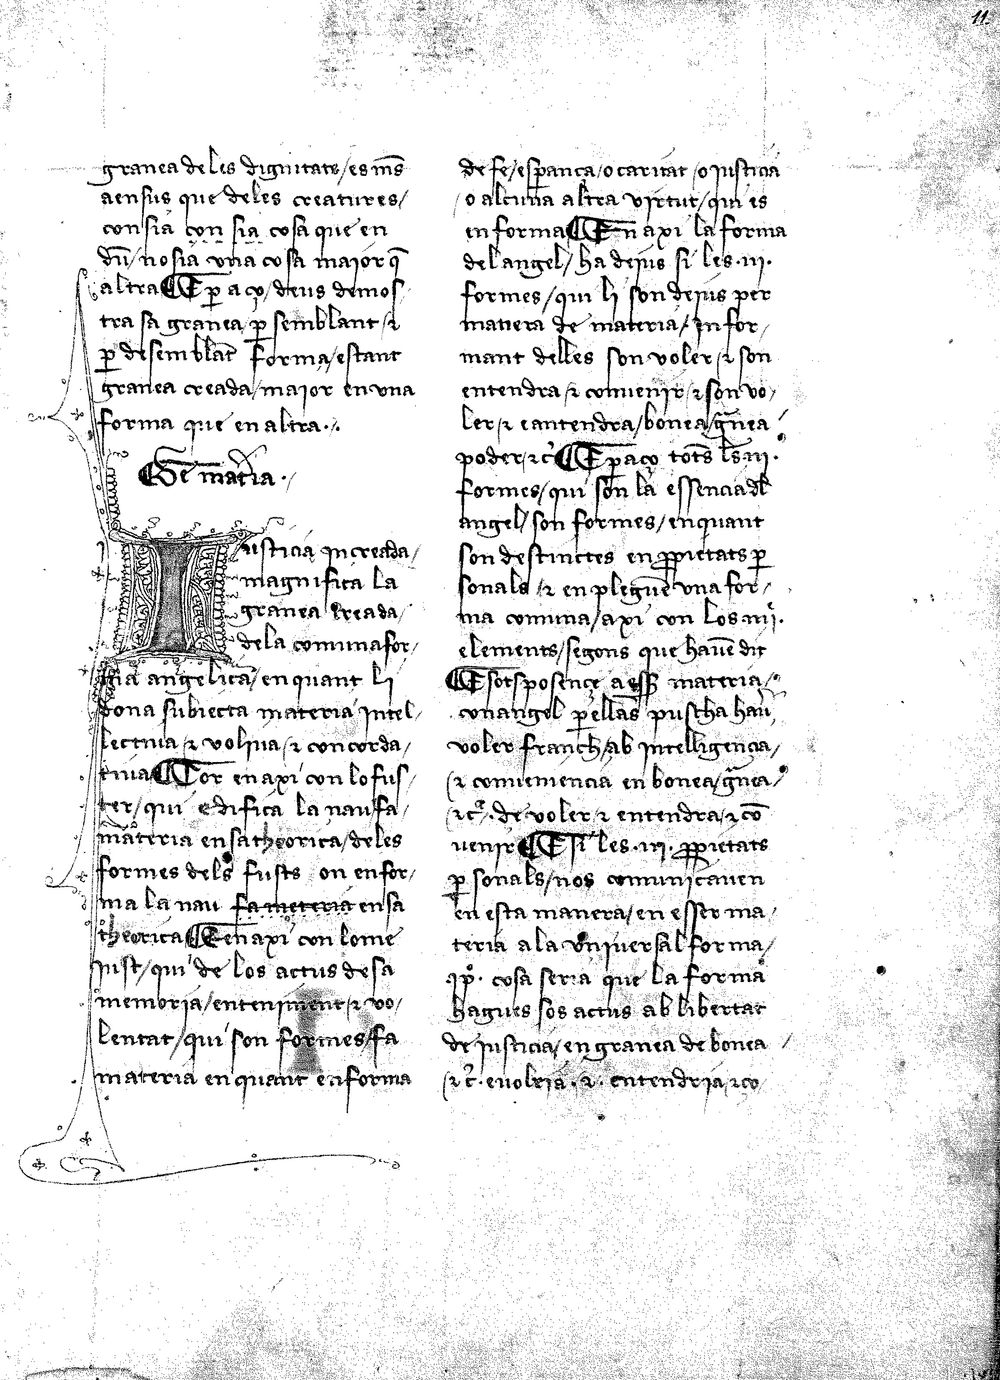 11.
granea de les dignitats / es mes̄
a ensus que de les creatures /
con sia con sia cosa que en
du̅ / no sia una cosa maior q̄
altra ¶ E ꝑ a ço / deus demos
tra sa granea / ꝑ semblant / ⁊
ꝑ desemblāt forma / estant
granea creada / maior en una
forma que en altra ·.
¶ De mat̄ia ·.
Iusticia increada /
magnifica la
granea creada /
de la comuna for /
ma angelica / en quant li
dona subiecta materia intel /
lectiua / ⁊ volitiua / ⁊ concorda /
tiua ¶ Cor en axi con lo fus /
ter / qui edifica la nau / fa /
materia en sa theorica / de les
formes dels fusts on enfor /
ma la nau fa materia en sa
theorica ¶ E en axi con lome
iust / qui de los actus de sa
memoria / enteniment / ⁊ vo /
lentat / qui son formes / fa
materia en quant enforma
de fe / esꝑança / o caritat / o iusticia
/ o alcuna altra virtut / qui es
en forma ¶ E en axi la forma
del angel / ha deius si les · iii ·
formes / qui li son deius per
manera de materia / Infor /
mant delles son voler / ⁊ son
entendra / ⁊ conuenir / ⁊ son vo /
ler / ⁊ entendra / bonea / ḡnea /
poder / ⁊ c̄ ¶ E ꝑ aço tots les iii ·
formes / qui son la essencia dl
angel / son formes / en quant
son destinctes en ꝓpietats ꝑ
sonals / ⁊ en plegue̅ una for /
ma comuna / axi con los iiii ·
elements / segons que haue̅ dit
¶ E sots posen se a esser materia /
con angel ꝑ ellas puscha hau̅
voler franch / ab intelligencia /
⁊ conueniencia en bonea / ḡnea /
⁊ c̄ · de voler ⁊ entendra / ⁊ co̅
uenir ¶ E si les · iii · ꝓpietats
ꝑsonals / nos comunicauen
en esta manera / en esser ma /
teria a la vniuersal forma /
ip̄ · cosa seria que la forma
hagues sos actus ab libertat
de iusticia / en granea de bonea /
⁊ c̄ · e uolria · ⁊ · entendria / ⁊ co